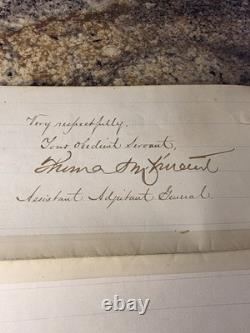 Very respectfully,
Your Obedient Servant,
Thomas M. Vincent
Assistant Adjutant General
ebay